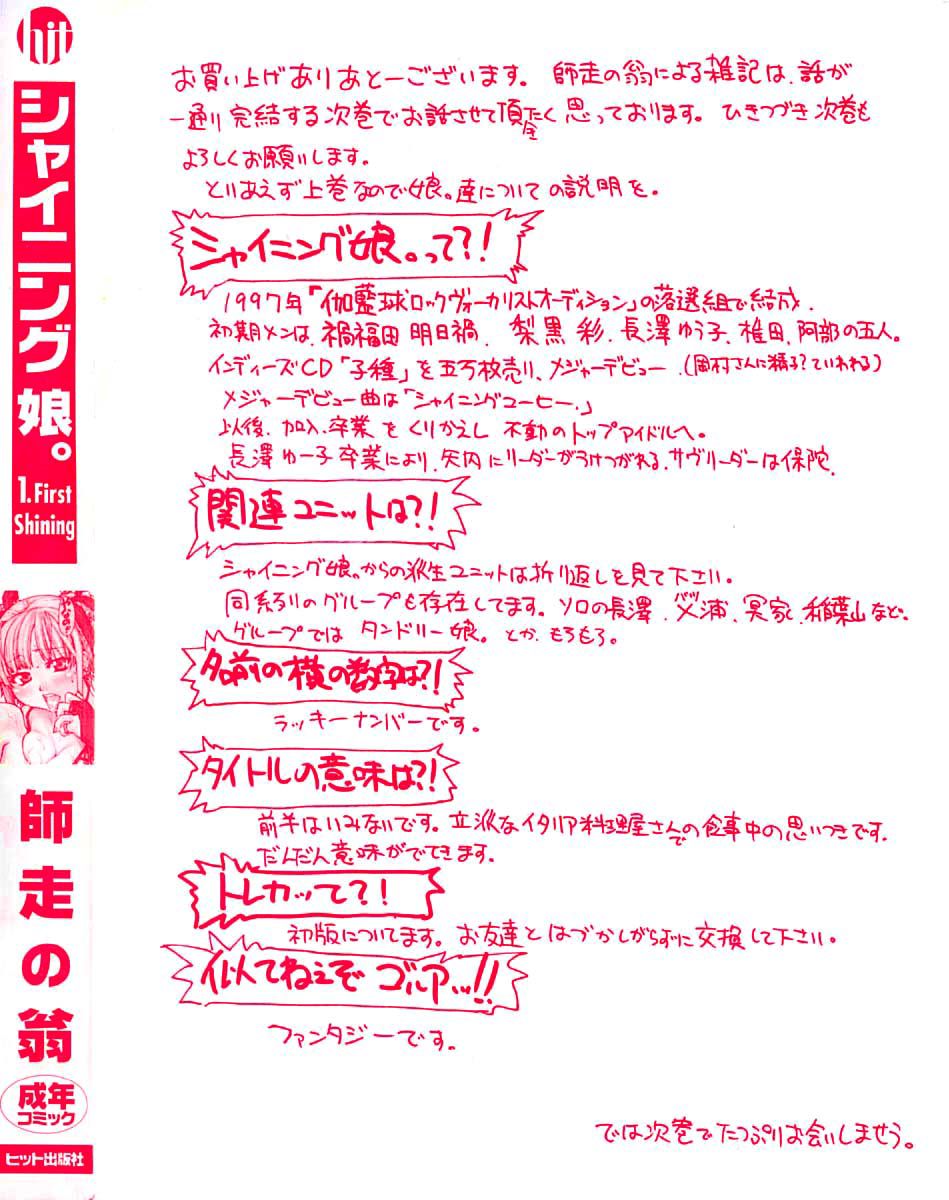 hit
シャイニング娘。
1.First
Shining
師走の翁
成年
コミック
ヒット出版社
お買い上げありあとーございます。 師走の翁による雑記は、話が
一通り完結する次巻でお話させて頂たく思っております。 ひきつづき次巻も
よろしくお願いします。
とりあえず上巻なので娘。達についての説明を。
シャイニング娘。って?!
1997年「伽藍球ロックヴォーカリストオーディション」の落選組で結成。
初期メンは、禍福田明日禍、梨黒彩、長澤ゆう子、椎田、阿部の五人。
インディーズCD「子種」を五万枚売り、メジャーデビュー。(岡村さんに精子?ていわれる)
メジャーデビュー曲は「シャイニングコーヒー。」
以後、加入、卒業をくりかえし不動のトップアイドルへ。
長澤ゆー子卒業により、矢内にリーダーがうけつがれる、サヴリーダーは保陀。
関連ユニットは?!
シャイニング娘。からの派生ユニットは折り返しを見て下さい。
同系列のグループも存在してます。ソロの長澤、浦、冥家、稲葉山など。
グループではタンドリー娘。とか、もろもろ。
名前の横の数字は?!
ラッキーナンバーです。
タイトルの意味は?!
前半はいみないです。立派なイタリア料理屋さんでの食事中の思いつきです。
だんだん意味がでてきます。
トレカッて?!
初版についてます。お友達とはづかしがらずに交換して下さい。
似てねぇぞゴルアッ!!
ファンタジーです。
では次巻でたっぷりお会いしませう。